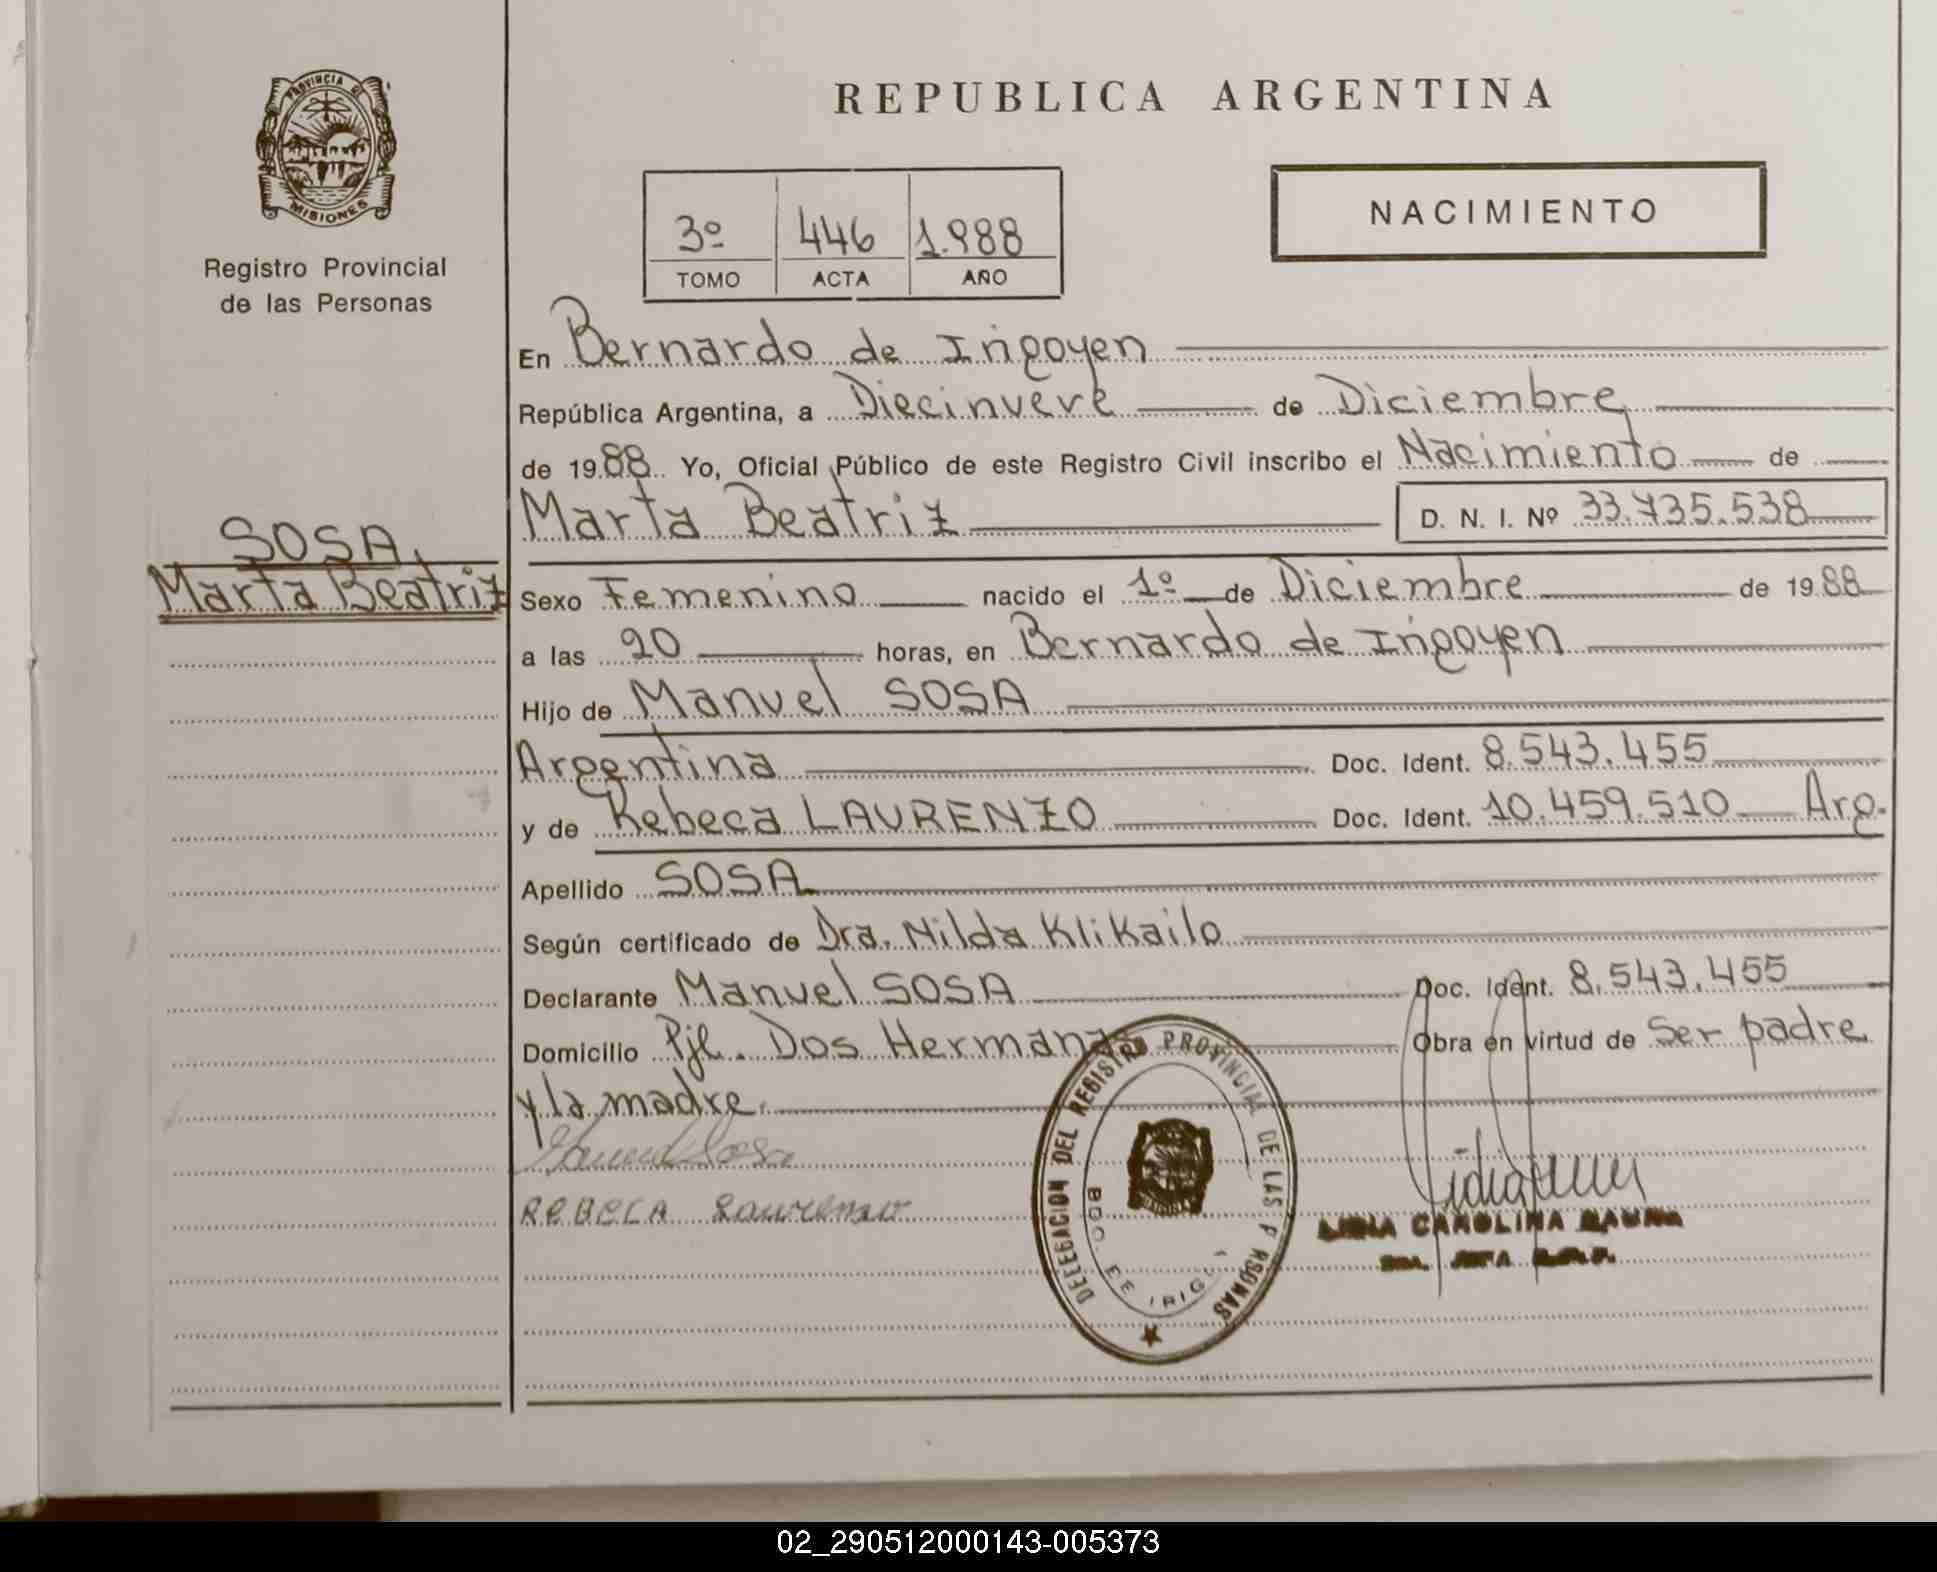 PROVINCIA DE
MISIONES
Registro Provincial
de las Personas
SOSA,
Marta Beatriz
REPUBLICA ARGENTINA
3º 446 1.988
TOMO ACTA AÑO
NACIMIENTO
En Bernardo de Irigoyen
República Argentina, a Diecinueve de Diciembre
de 1988 Yo, Oficial Público de este Registro Civil inscribo el Nacimiento de
Marta Beatriz D. N. I. Nº 33.735.538
Sexo Femenino nacido el 1º de Diciembre de 1988
a las 20 horas, en Bernardo de Irigoyen
Hijo de Manuel SOSA
Argentina Doc. Ident. 8.543.455
y de Rebeca LAURENZO Doc. Ident. 10.459.510 Arg.
Apellido SOSA
Según certificado de Dra. Nilda Klikailo
Declarante Manuel SOSA Doc. Ident. 8.543.455
Domicilio Pje. Dos Hermanas Obra en virtud de Ser padre
y la madre.
Manuel Sosa
REBECA Laurenzo
DELEGACION DEL REGISTRO PROVINCIAL DE LAS PERSONAS
BDO. DE IRIGOYEN
LIDIA CAROLINA
02_290512000143-005373